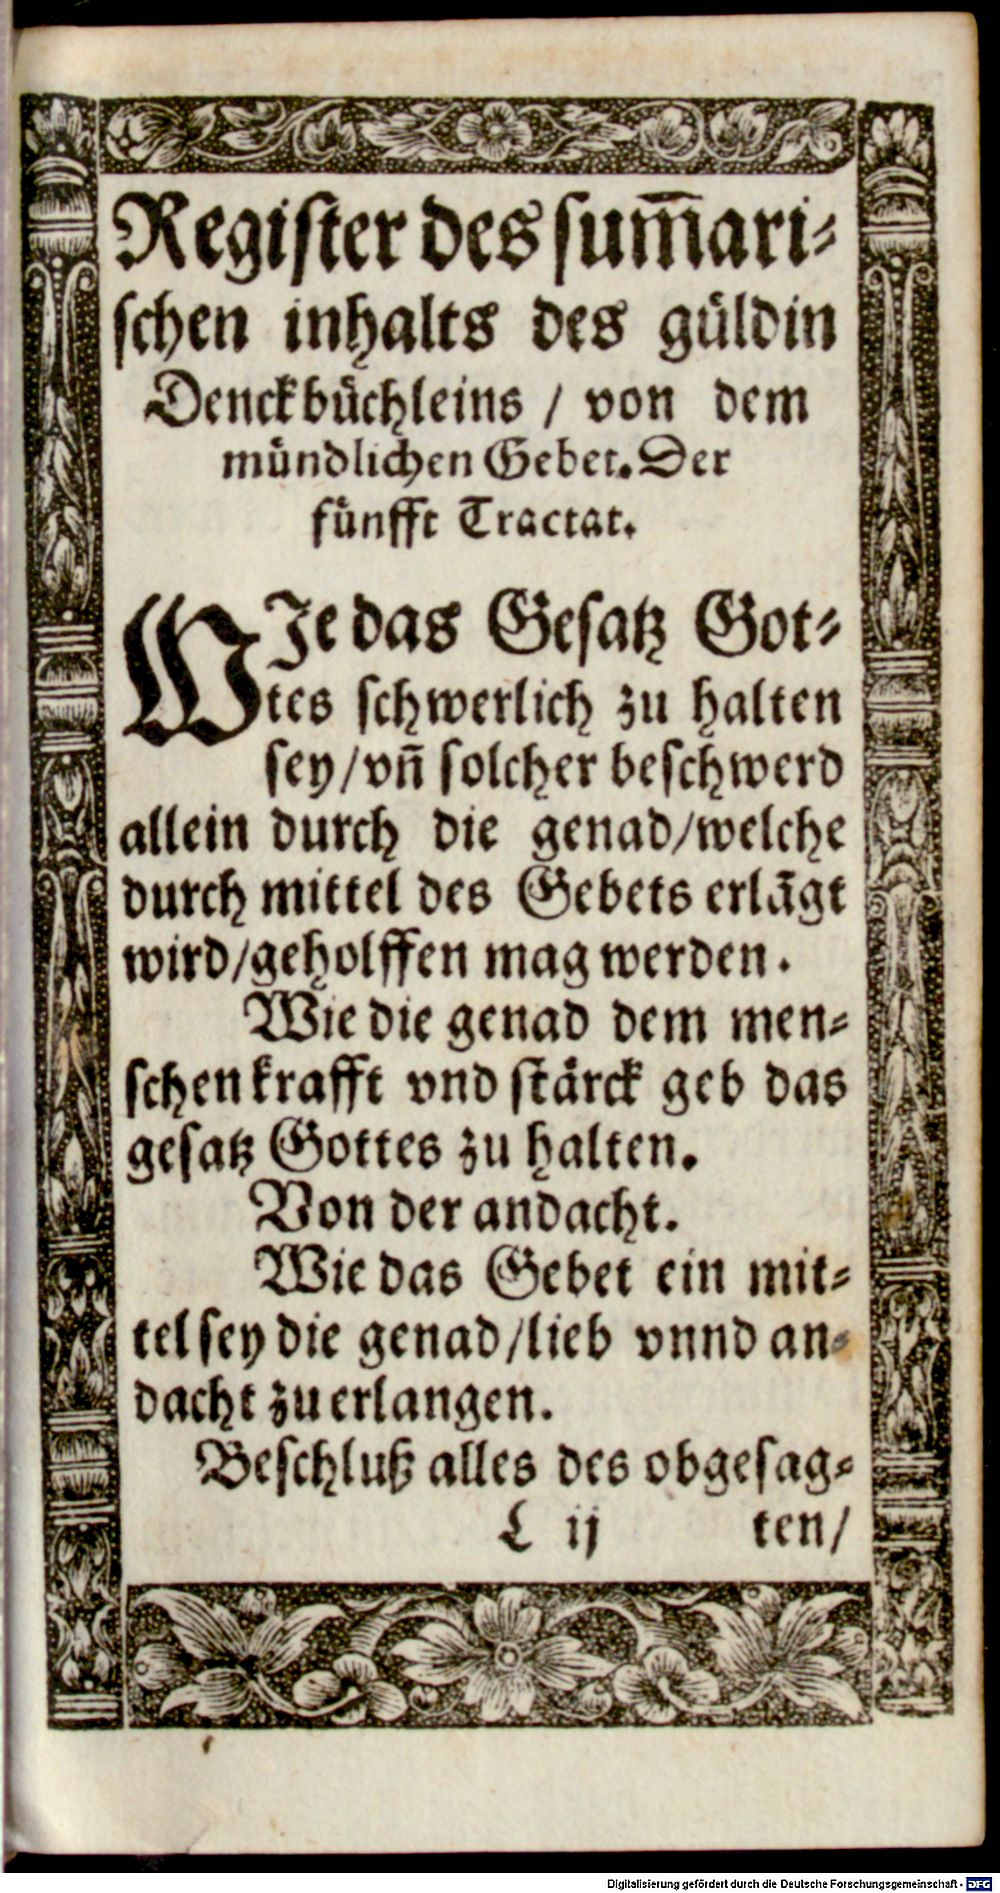 Register des sum̄ari⸗
schen inhalts des güldin
Denckbüchleins / von dem
mündlichen Gebet. Der
fünfft Tractat.
WJe das Gesatz Got⸗
tes schwerlich zu halten
sey/vn̄ solcher beschwerd
allein durch die genad/welche
durch mittel des Gebets erlāgt
wird/geholffen mag werden.
Wie die genad dem men⸗
schen krafft vnd stärck geb das
gesatz Gottes zu halten.
Von der andacht.
Wie das Gebet ein mit⸗
tel sey die genad/lieb vnnd an⸗
dacht zu erlangen.
Beschluß alles des obgesag⸗
L ij ten/
Digitalisierung gefördert durch die Deutsche Forschungsgemeinschaft - DFG